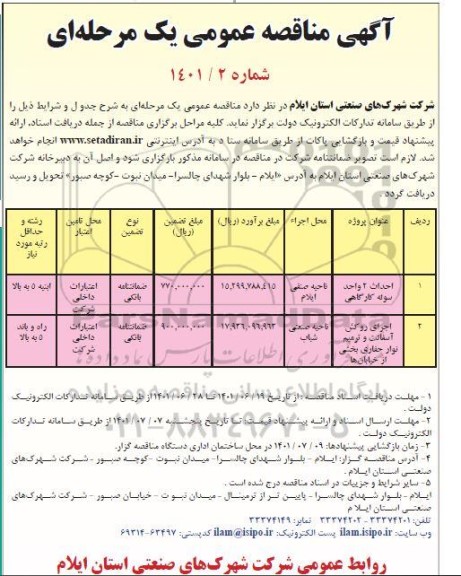 آگهی مناقصه عمومی یک مرحله‌ای
شماره ۲ / ۱۴۰۱
شرکت شهرک‌های صنعتی استان ایلام در نظر دارد مناقصه عمومی یک مرحله‌ای به شرح جدول و شرایط ذیل را
از طریق سامانه تدارکات الکترونیک دولت برگزار نماید. کلیه مراحل برگزاری مناقصه از جمله دریافت اسناد، ارائه
پیشنهاد قیمت و بازگشایی پاکات از طریق سامانه ستاد به آدرس اینترنتی www.setadiran.ir انجام خواهد
شد. لازم است تصویر ضمانتنامه شرکت در مناقصه در سامانه مذکور بارگزاری شود و اصل آن به دبیرخانه شرکت
شهرک‌های صنعتی استان ایلام به آدرس «ایلام - بلوار شهدای چالسرا- میدان نبوت -کوچه صبور» تحویل و رسید
دریافت گردد.
ردیف عنوان پروژه محل اجراء مبلغ برآورد (ریال) مبلغ تضمین (ریال) نوع تضمین محل تامین اعتبار رشته و حداقل رتبه مورد نیاز
۱ احداث ۲ واحد سوله کارگاهی ناحیه صنفی ایلام ۱۵,۲۹۹,۷۸۸,۴۱۵ ۷۷۰,۰۰۰,۰۰۰ ضمانتنامه بانکی اعتبارات داخلی شرکت ابنیه ۵ به بالا
۲ اجرای روکش آسفالت و ترمیم نوار حفاری بخشی از خیابان‌ها ناحیه صنعتی شباب ۱۷,۹۳۶,۰۹۶,۹۶۳ ۹۰۰,۰۰۰,۰۰۰ ضمانتنامه بانکی اعتبارات داخلی شرکت راه و باند ۵ به بالا
۱ - مهلت دریافت اسناد مناقصه : از تاریخ ۱۹ /۰۶ /۱۴۰۱ تا ۲۸ /۰۶ /۱۴۰۱ از طریق سامانه تدارکات الکترونیک
دولت .
۲- مهلت ارسال اسناد و ارائه پیشنهاد قیمت: تا تاریخ پنجشنبه ۰۷ /۰۷ /۱۴۰۱ از طریق سامانه تدارکات
الکترونیک دولت .
۳- زمان بازگشایی پیشنهادها: ۰۹ /۰۷ /۱۴۰۱ در محل ساختمان اداری دستگاه مناقصه گزار.
۴- آدرس مناقصه گزار: ایلام - بلوار شهدای چالسرا- میدان نبوت -کوچه صبور - شرکت شهرک‌های
صنعتی استان ایلام .
۵- سایر شرایط و جزییات در اسناد مناقصه درج شده است .
ایلام - بلوار شهدای چالسرا - پایین تر از ترمینال - میدان نبوت - خیابان صبور - شرکت شهرک‌های
صنعتی استان ایلام
تلفن: ۳۳۳۷۴۲۰۱ - ۳۳۳۷۴۲۰۲ نمابر: ۳۳۳۷۴۱۴۹
وب سایت: ilam.isipo.ir پست الکترونیک: ilam@isipo.ir کدپستی: ۶۳۴۹۷-۶۹۳۱۴
روابط عمومی شرکت شهرک‌های صنعتی استان ایلام